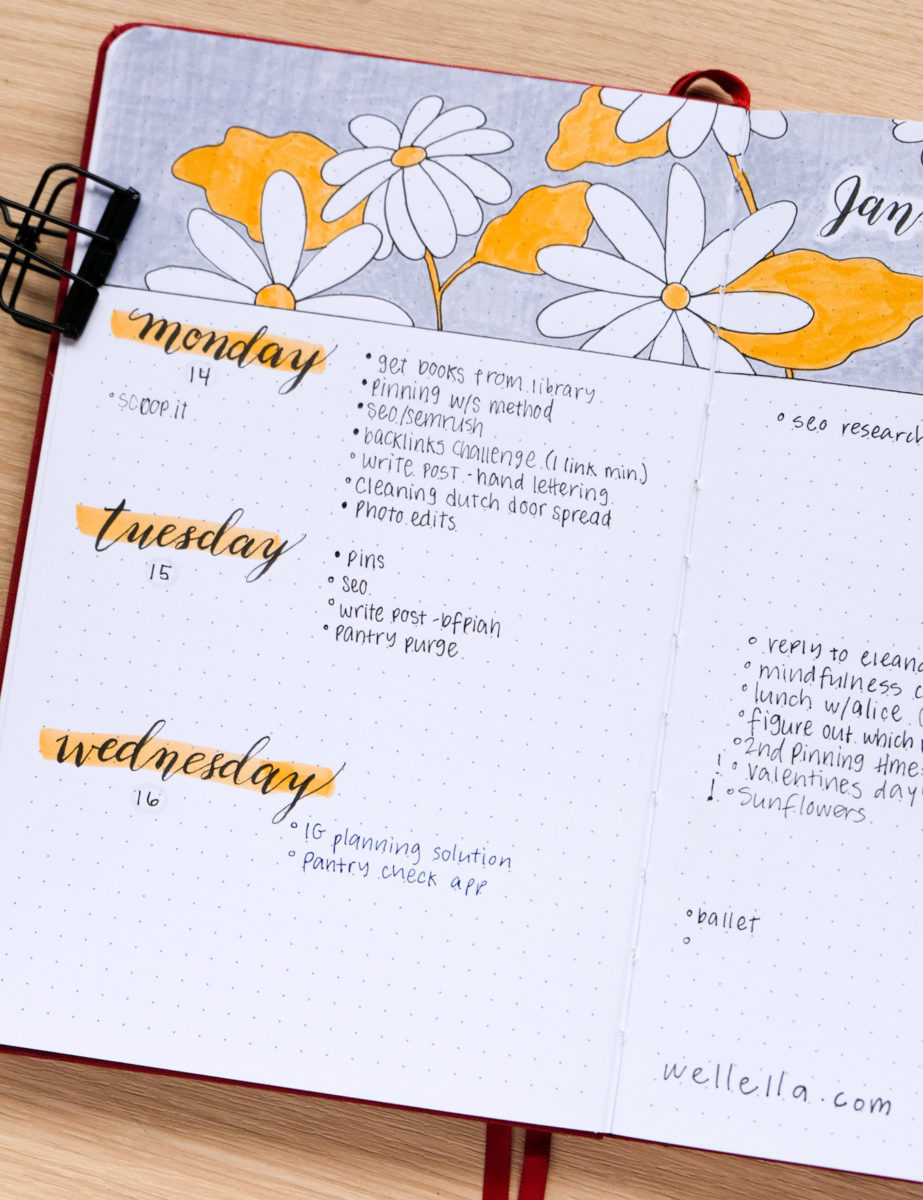 Jan
monday
14
scoop.it
get books from library
pinning w/s method
seo/semrush
backlinks challenge (1 link min.)
write post - hand lettering
cleaning dutch door spread
photo edits
tuesday
15
pins
seo
write post - bfpiah
pantry purge
wednesday
16
IG planning solution
pantry check app
seo research
reply to
mindfulness
lunch w/alice
figure out which
2nd pinning time
! valentines day
! sunflowers
ballet
wellella.com